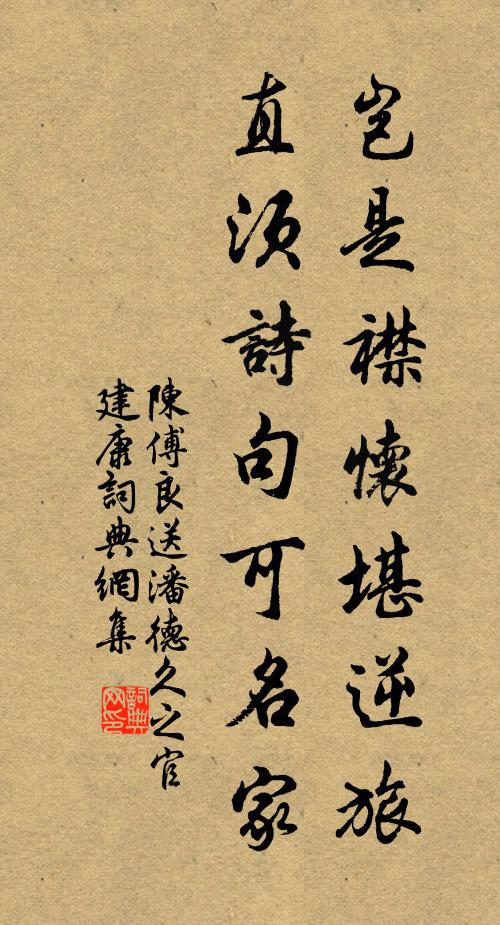 岂是襟懷堪逆旅
直須詩句可名家
陳傅良送潘德久之官
建康詞典網集
詞典
网印